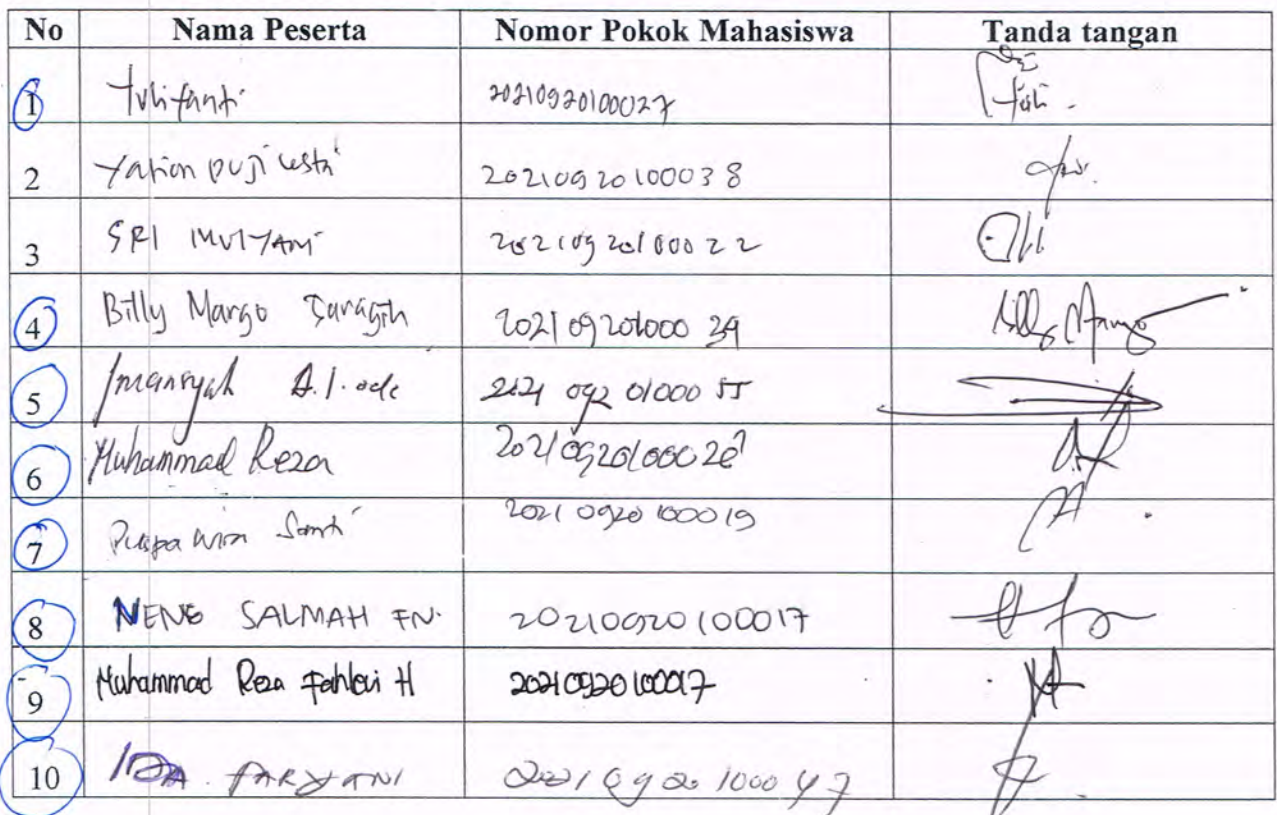 No Nama Peserta Nomor Pokok Mahasiswa Tanda tangan
1 Yuli fanti 20210920100027
2 puji 20210920100038
3 SRI MULYANI 20210920100022
4 Billy Margo Saragih 20210920100029
5 Imansyah
6 Muhammad Reza
7 Puspa Santi 20210920100019
8 NENG SALMAH FN. 20210920100017
9 Muhammad Reza Fahlevi H 20210920100017
10 IDA. FARYANI 20210920100047